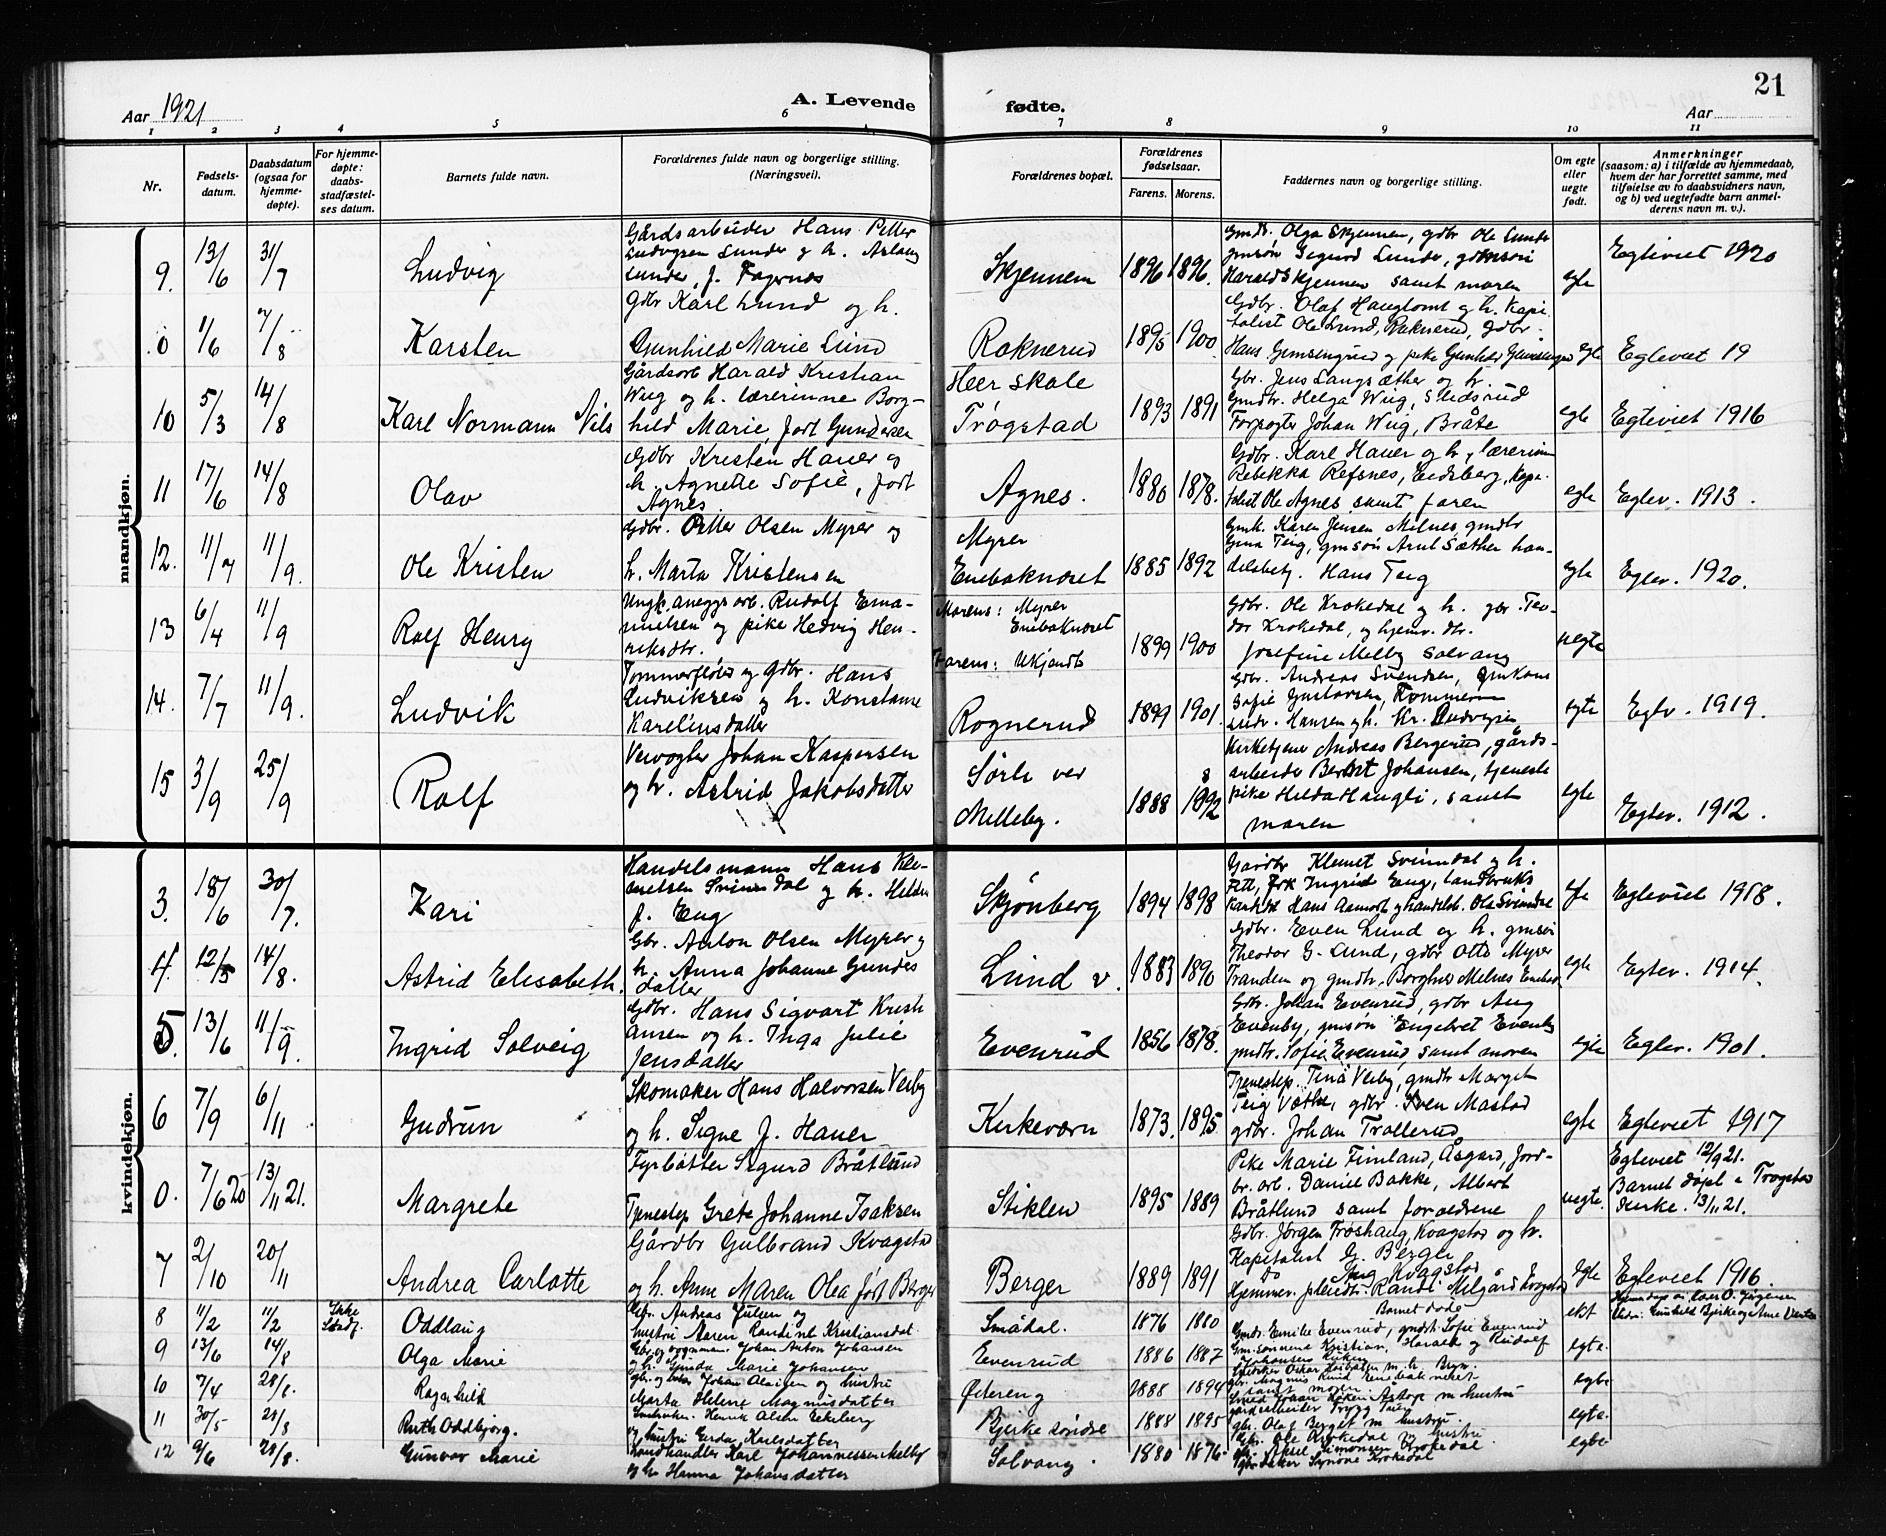 21
Aar 1921
A. Levende fødte.
Aar
1 2 3 4 5 6 7 8 9 10 11
Nr.
Fødsels-
datum.
Daabsdatum
(ogsaa for
hjemme-
døpte).
For hjemme-
døpte:
daabs-
stadfæstel-
ses datum.
Barnets fulde navn.
Forældrenes fulde navn og borgerlige stilling.
(Næringsvei).
Forældrenes bopæl.
Forældrenes
fødselsaar.
Farens. Morens.
Faddernes navn og borgerlige stilling.
Om egte
eller
uegte
født.
Anmerkninger
(saasom: a) i tilfælde av hjemmedaab,
hvem der har forrettet samme, med
tilføielse av to daabsvidners navn,
og b) ved uegtefødte barn anmel-
derens navn m. v.).
mandkjøn.
9. 13/6 31/7 Ludvig
Gårdsarbeider Hans Petter
Ludvigsen Lunder g h. Aslaug
Lunder, f. Fagernes
Skjennem 1896 1896.
Gmdt. Olga Skjennem, gdbr Ole Lunde
gmsøn Sigurd Lunde, gdmsøn
Harald Skjennem samt moren
egte Egteviet 1920
0 1/6 7/8 Karsten
Gdbr Karl Lund og h.
Gunhild Marie Lund
Raknerud 1895 1900
Gdbr. Olaf Haugtomt og h. Kapi-
talist Ole Lund, Raknerud, gdbr.
Hans Gimsengrud g pike Gunhild
egte Egteviet 19
10 5/3 14/8 Karl Normann Nils
Gårdsarb Harald Kristian
Wiig og h. lærerinne Borg-
hild Marie, født Gundersen
Heer skole
Trøgstad 1893 1891
Gbr. Jens Langsæther og h.
Gmdtr. Helga Wiig,
Forpagter Johan Wiig, Bråte
egte Egteviet 1916
11 17/6 14/8 Olav
Gdbr Kristen Hauer og
h. Agnette Sofie, født
Agnes
Agnes. 1880 1878.
Gdbr. Karl Hauer og h, lærerinne
Rebekka Refsnes, Eidsberg, kapi-
talist Ole Agnes samt faren
egte Egtev. 1913.
12. 11/7 11/9. Ole Kristen
Gdbr. Petter Olsen Myrer og
h. Marta Kristensen
Myrer
Enebaknæset 1885 1892
Gmk. Karen Jensen Milnes gmdtr
Gina Teig, gmsøn Arnt Sæther han-
delsbetj. Hans Teig
egte Egtev. 1920.
13 6/4 11/9 Rolf Henry
Ungk. anleggsarb. Rudolf Ema-
nuelsen og pike Hedvig Hen-
riksdtr.
Morens: Myrer
Enebaknæset
Farens: Ukjendt 1899 1900
Gdbr. Ole Krokedal og h. gbr. Teo-
dor Krokedal, og hjemv. dtr.
Josefine Melby Solvang
uegte
14. 7/7 11/9. Ludvik
Tømmerfløter og Gdbr. Hans
Ludviksen og h. Konstanse
Karelinsdatter
Rognerud 1899 1901.
Gdbr. Andreas Svendsen, Gmkone
Sofie Gustavsen, Tømmerm
Ludv. Hansen og h. Kr. Ludvigsen
egte Egtv. 1919.
15 3/9 25/9 Rolf
Veivogter Johan Kaspersen
og h. Astrid Jakobsdatter
Sørli ved
Melleby. 1888 1892
Kirketjener Andreas Bergerud, gårds-
arbeider Bernt Johansen, tjeneste
pike Hilda Haugli, samt
moren
egte Egtev. 1912.
kvindekjøn.
3. 18/6 30/7. Kari
Handelsmann Hans Kle-
metsen Svinndal og h. Helene
f. Eng
Skjønberg 1894 1898
Gårdbr Klemet Svinndal og h.
Pett, frk Ingrid Eng, landbruks
kandidat Hans Aamodt g handelsb. Ole Svindal
egte Egteviet 1918.
4. 12/5 14/8. Astrid Elisabeth.
Gbr. Anton Olsen Myrer g
h. Anna Johanne Gundes
datter
Lund v. 1883 1890
Gdbr. Even Lund og h. gmsøn
Theodor G. Lund, gdbr Otto Myrer
Tranden og gmdtr. Borghild Melnes Enebak
egte Egtev. 1914.
5. 13/6 11/9. Ingrid Solveig
Gdbr. Hans Sigvart Kristi
ansen og h. Inga Julie
Jensdatter
Evenrud 1856 1878.
Gdbr. Johan Evenrud, gdbr Aug
Evenby, gmsøn Engebret Evenby
gmdtr. Sofie Evenrud, samt moren
egte Egtev. 1901.
6 7/9 6/11 Gudrun
Skomaker Hans Halvorsen Veiby
og h. Signe f. Hauer
Kirkevern 1873. 1895
Tjenestep. Tina Veiby, gmdtr Margit
Teig gdbr. Sven Mastad
gdbr. Johan Trollerud
egte Egteviet 1917
0. 7/6 20 13/11 21. Margrete
Fyrbøtter Sigurd Bråtlund
Tjenestep Grete Johanne Isaksen
Stiklen 1895 1889
Pike Marie Fimland, Åsgard, Jord-
br. arb. Daniel Bakke, Albert
Bråtlund samt foreldrene
uegte. Egteviet 12/9 21.
Barnet døpt i Trøgstad
Kirke. 13/11 21.
7 2/10 20/11 Andrea Carlotte
Gårdbr Gulbrand Kvagstad
og h. Anne Maren Olea født Berger
Berger 1889 1891
Gdbr. Jørgen Frøshaug, Kvagstad og h.
Kapitalist G. Berger
do Aug Kvagstad
Hjemmev. pleiedtr. Randi Milgård Kvagstad
egte Egteviet 1916.
8 11/2 11/2 Ikke
Stadf. Oddlaug
Gbr. Andreas Julsen og
hustru Maren Randine Kristiansdat.
Smådal. 1876 1880
Barnet døde
ekt Hjemdøp av Lars O. Jørgensen
Vidn: Gunhild Bjerke og Anne
9 13/6 14/8 Olga Marie
Gbr. og bygnmm. Johan Anton Johansen
og h. Gunda Marie Johansen
Evenrud 1886 1887
Gmdt. Emilie Evenrud, gmdt. Sofie Evenrud
Gm.sønnene Kristian, Harald og Rudolf
egte.
10 7/4 28/8. Ragnhild
Johan Olausen og hustru
Marta Helene Magnusdatter
Østereng 1888 1894
egte
11 30/5 28/8 Ruth Oddbjørg.
Henrik Olsen Eekeberg
og hustru Gerda Karlsdatter
Bjerke søndre 1888 1895
gbr. Olaf Berget m hustru.
egte.
12 9/6 28/8. Gunvor Marie
Landhandler Karl Johannessen Melby
og h. Hanna Johansdatter
Solvang. 1880 1876.
Gbr. Ole Krokedal og hustru
gbr. Aksel Simonsen Krokedal
Synøve Krokedal
egte